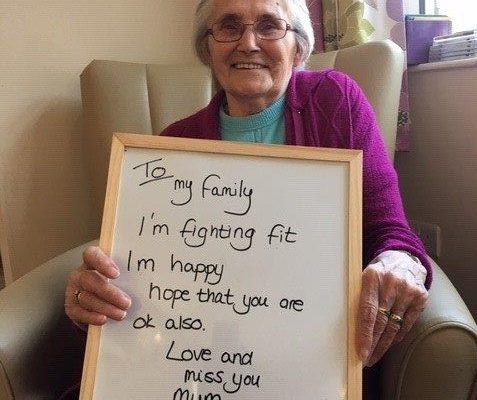 To
my family
I'm fighting fit
Im happy
hope that you are
ok also.
Love and
miss you
Mum